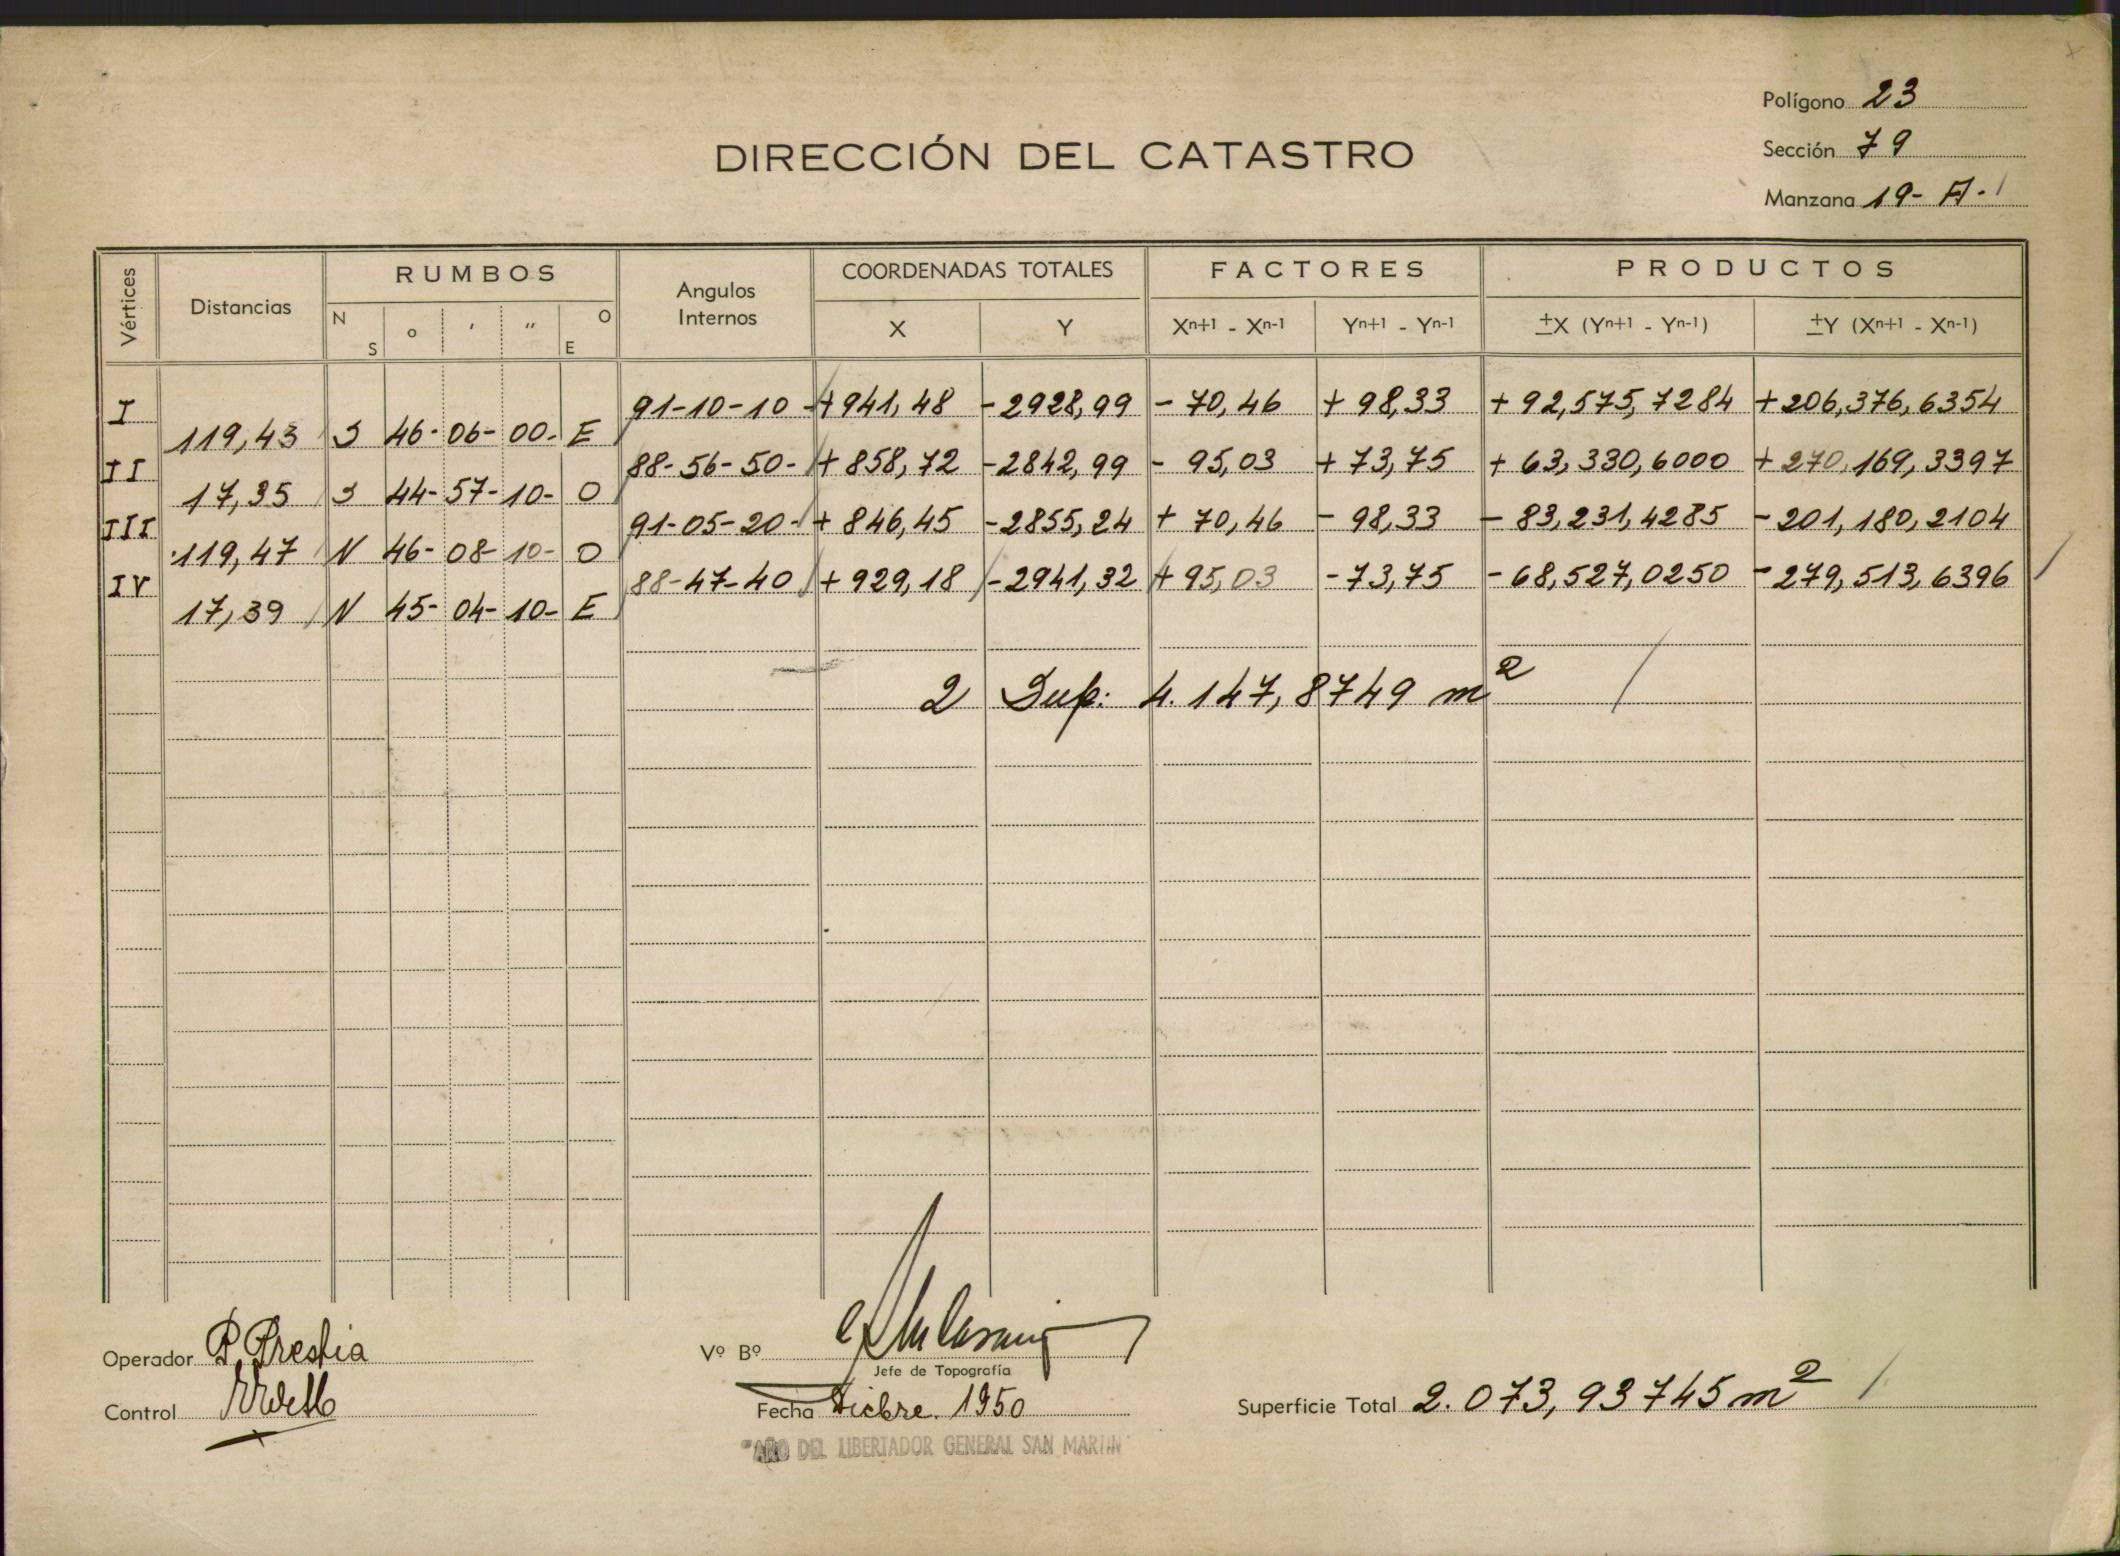 Polígono 23
DIRECCIÓN DEL CATASTRO
Sección 79
Manzana 19-A-1
Vértices Distancias RUMBOS Angulos Internos COORDENADAS TOTALES FACTORES PRODUCTOS
N S o ' " O E X Y Xn+1 - Xn-1 Yn+1 - Yn-1 ±X (Yn+1 - Yn-1) ±Y (Xn+1 - Xn-1)
I 91-10-10- +941,48 -2928,99 - 70,46 + 98,33 + 92,575,7284 +206,376,6354
119,43 S 46- 06- 00- E
II 88-56-50- +858,72 -2842,99 - 95,03 + 73,75 + 63,330,6000 +270,169,3397
17,35 S 44- 57- 10- O
III 91-05-20- + 846,45 -2855,24 + 70,46 - 98,33 - 83,231,4285 -201,180,2104
119,47 N 46- 08- 10- O
IV 88-47-40 +929,18 -2941,32 +95,03 -73,75 -68,527,0250 -279,513,6396
17,39 N 45- 04- 10- E
2 Sup: 4.147,8749 m2
Operador P. Prestia
Vº Bº
Jefe de Topografía
Control
Fecha Dicbre. 1950
Superficie Total 2.073,93745 m2
"AÑO DEL LIBERTADOR GENERAL SAN MARTIN"